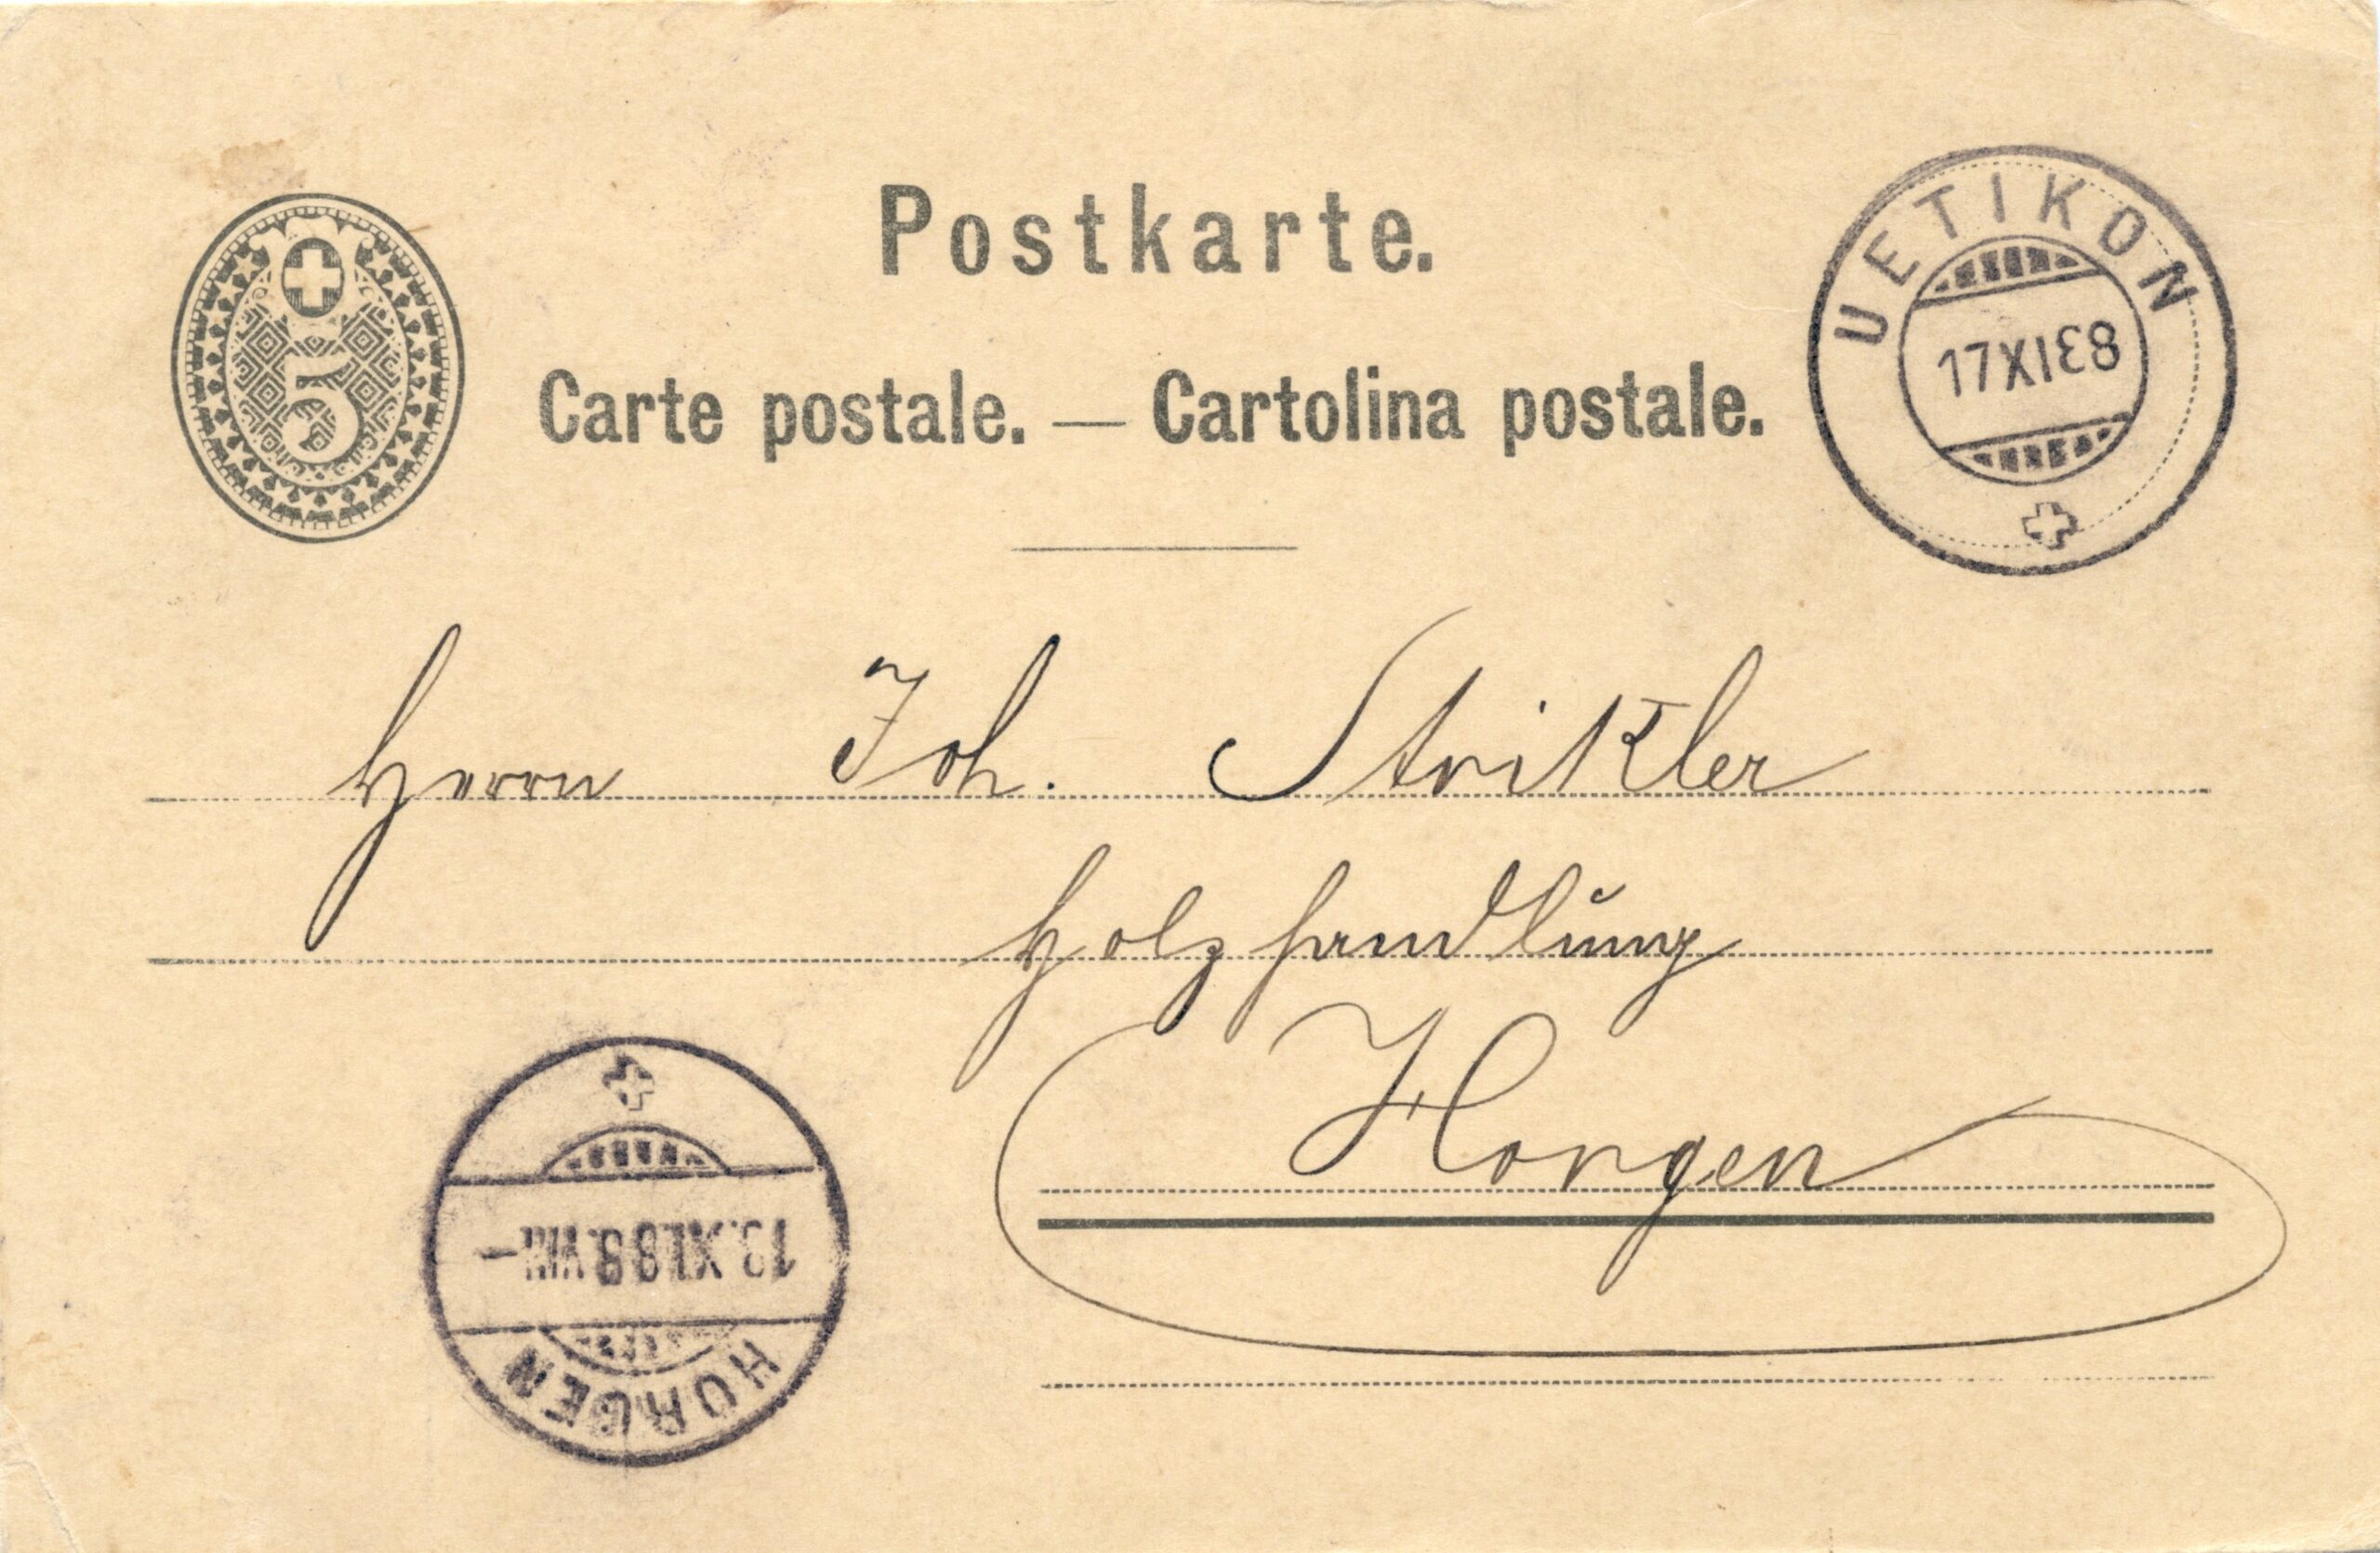 Postkarte.
Carte postale. — Cartolina postale.
5
UETIKON
17 XI 88
Herrn Joh. Strikler
Holzhandlung
Horgen
18. XI. 88. VIII –
HORGEN